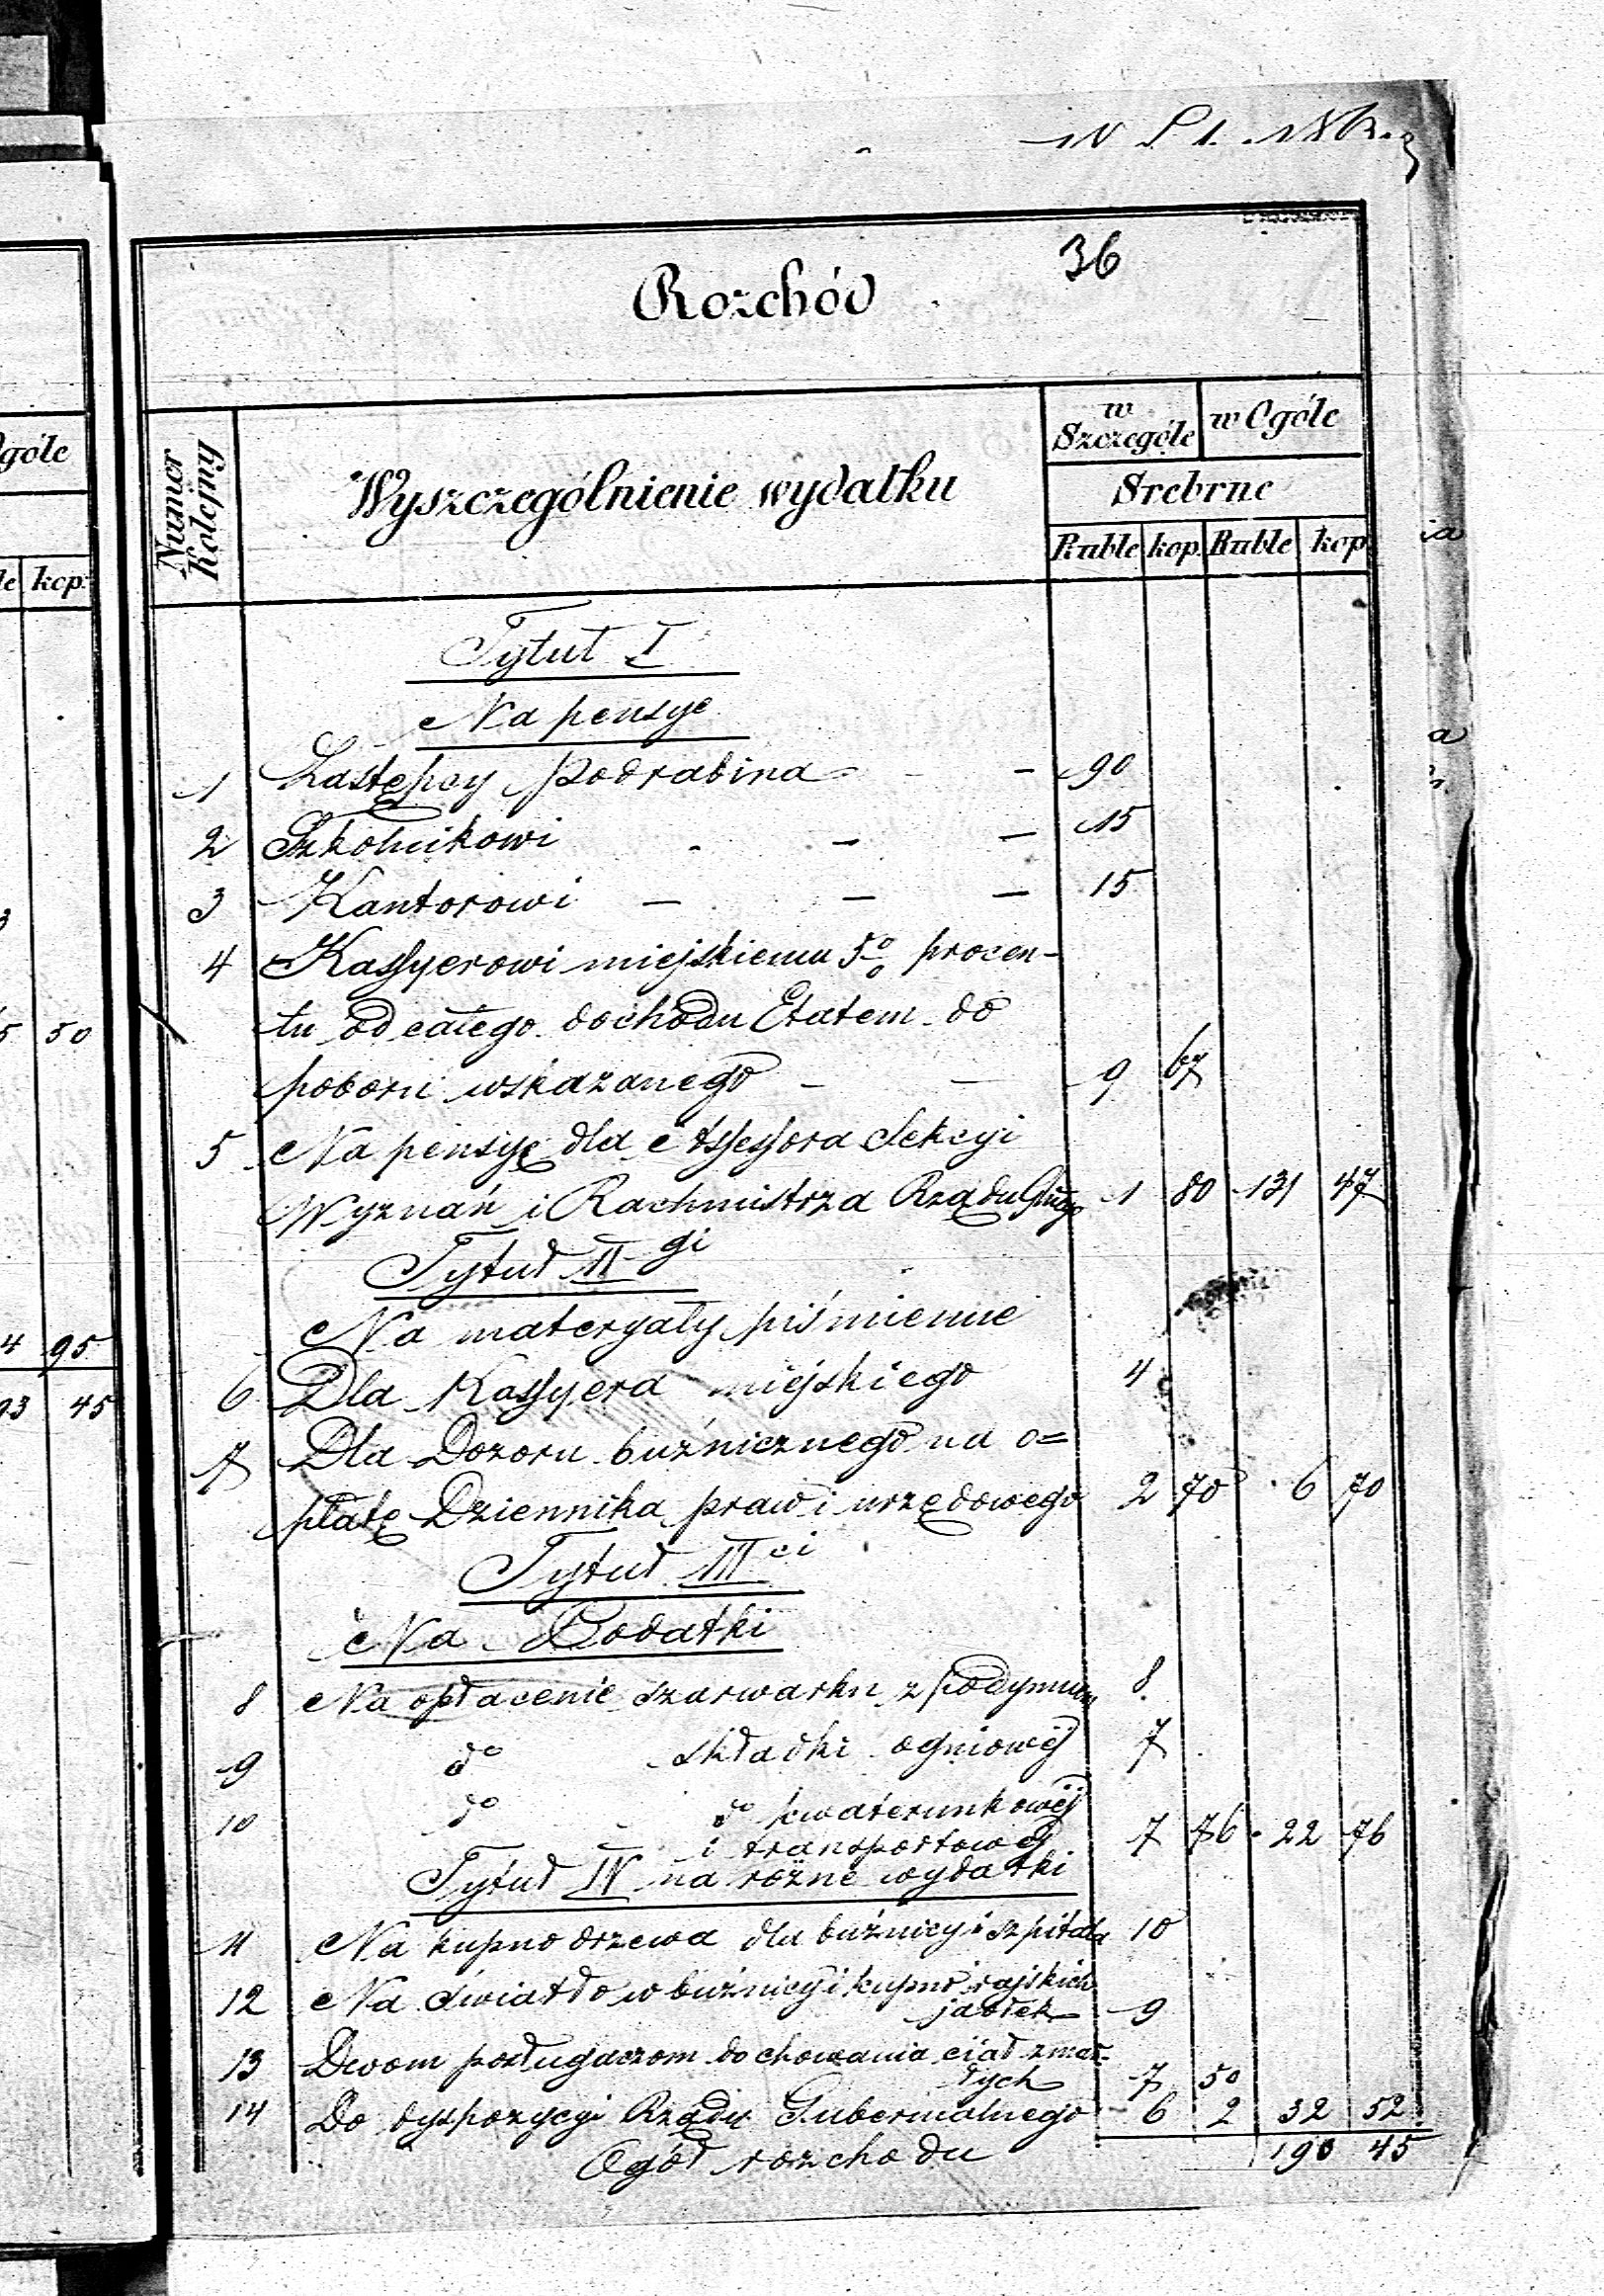 36
Rozchód
Numer Kolejny
Wyszczególnienie wydatku
w Szczególe
w Ogóle
Srebrne
Ruble kop. Ruble kop
Tytuł I
Na pensye
1 Zastępcy Podrabina - - 90
2 Szkolnikowi - - - 15
3 Kantorowi - - - 15
4 Kassyerowi miejskiemu 5% procen-
tu od całego dochodu Etatem do
poboru wskazanego - - 9 67
5 Na pensyę dla Assessora Sekcyi
Wyznań i Rachmistrza Rządu Gubgo 1 80 131 47
Tytuł II gi
Na materyały piśmienne
6 Dla Kassyera miejskiego 4
7 Dla Dozoru bużnicznego na o=
płatę Dziennika praw i urzędowego 2 70 6 70
Tytuł III ci
Na Podatki
8 Na opłacenie szarwarku z podymnem 8
9 do składki ogniowéj 7
10 do do kwaterunkowéj
i transportowéj 7 76 22 76
Tytuł IV na różne wydatki
11 Na kupno drzewa dla bużnicy i szpitala 10
12 Na światło w bużnicy i kupno rajskich
jabłek 9
13 Dwom posługaczom do chowania ciał zmar-
łych 7 50
14 Do dyspozycyi Rządu Gubernialnego 6 2 32 52
Ogół rozchodu 193 45
góle
kop:
50
4 95
93 45